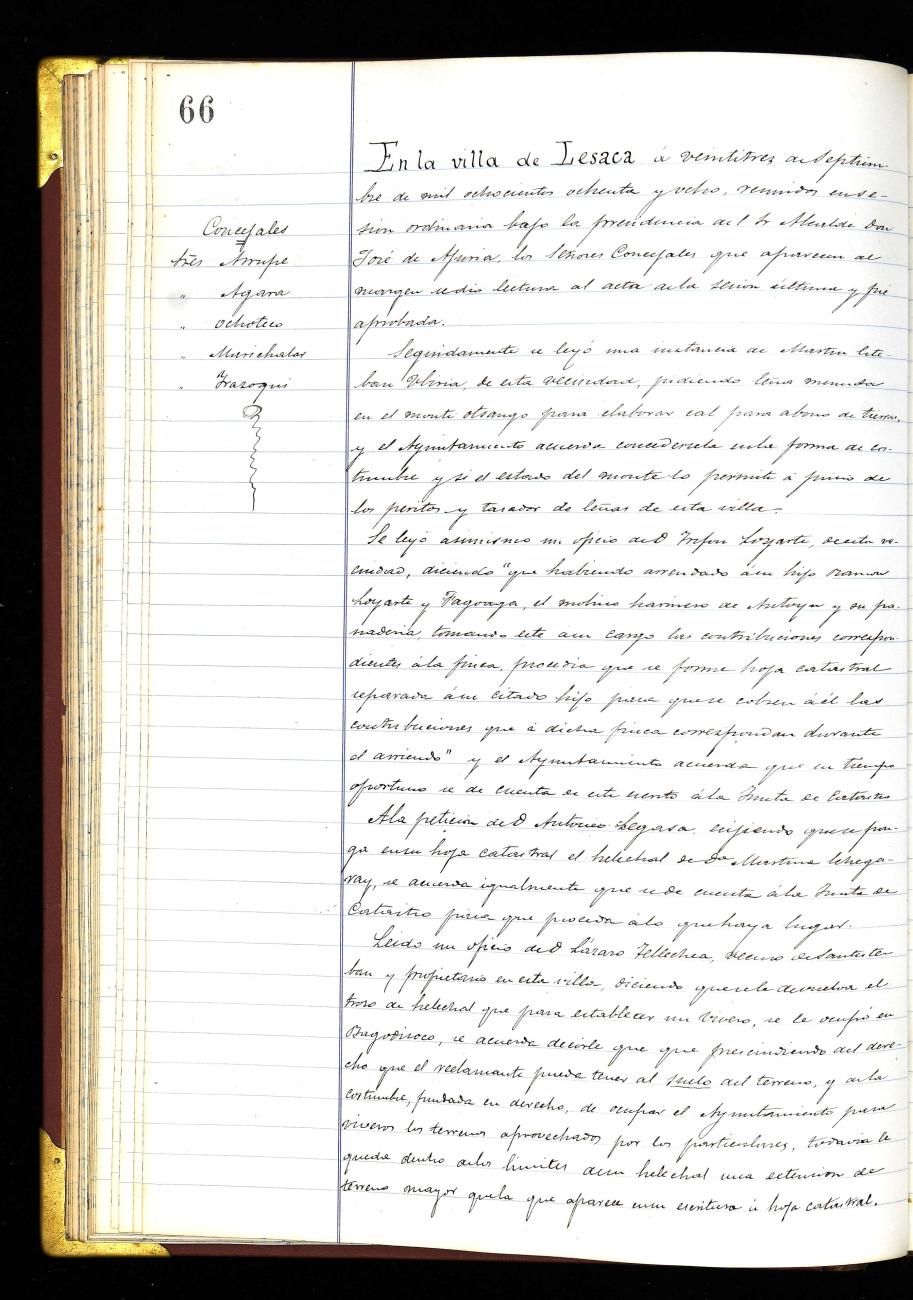 66
Concejales
Sres Arrupe
" Agara
" Ochoteco
" Marichalar
" Irazoqui
En la villa de Lesaca á veintitres de Septiem-
bre de mil ochocientos ochenta y ocho, reunidos en se-
sion ordinaria bajo la presidencia del Sr Alcalde Don
José de los Señores Concejales que aparecen al
margen se dio lectura al acta de la sesion última y fué
aprobada.
Seguidamente se leyó una instancia de Martin Este-
ban de esta vecindad, pidiendo leña menuda
en el monte otsango para elaborar cal para abono de tierras,
y el Ayuntamiento acuerda concedersela en la forma de cos-
tumbre y si el estado del monte lo permite á juicio de
los peritos y tasador de leñas de esta villa.
Se leyó asimismo un oficio de D Trifon Loyarte, de esta ve-
cindad, diciendo "que habiendo arrendado á su hijo Ramon
Loyarte y Pagoaga, el molino harinero de y su pa-
naderia, tomando este á su cargo las contribuciones correspon-
dientes á la finca, procedia que se forme hoja catastral
separada á su citado hijo para que se cobren á él las
contribuciones que á dicha finca correspondan durante
el arriendo" y el Ayuntamiento acuerda que en tiempo
oportuno se de cuenta de este escrito á la Junta de Catastro
A la peticion de D Antonio Legasa, exijiendo que se pon-
ga en su hoja catastral el helechal de Da Martina Echega-
ray, se acuerda igualmente que se de cuenta á la Junta de
Catastro para que proceda á lo que haya lugar.
Leido un oficio de D Lázaro Tellechea, vecino de Santiste-
ban y propietario en esta villa, diciendo que se le devuelva el
trozo de helechal que para establecer un vivero, se le ocupó en
se acuerda decirle que que prescindiendo del dere-
cho que el reclamante pueda tener al suelo del terreno, y de la
costumbre, fundada en derecho, de ocupar el Ayuntamiento para
viveros los terrenos aprovechados por los particulares, todavia le
queda dentro de los limites de su helechal una estension de
terreno mayor que la que aparece en su escritura ú hoja catastral.